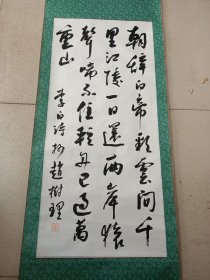 朝辞白帝彩云间千
里江陵一日還两岸猿
聲啼不住轻舟已过萬
重山
李白诗抄趙樹理